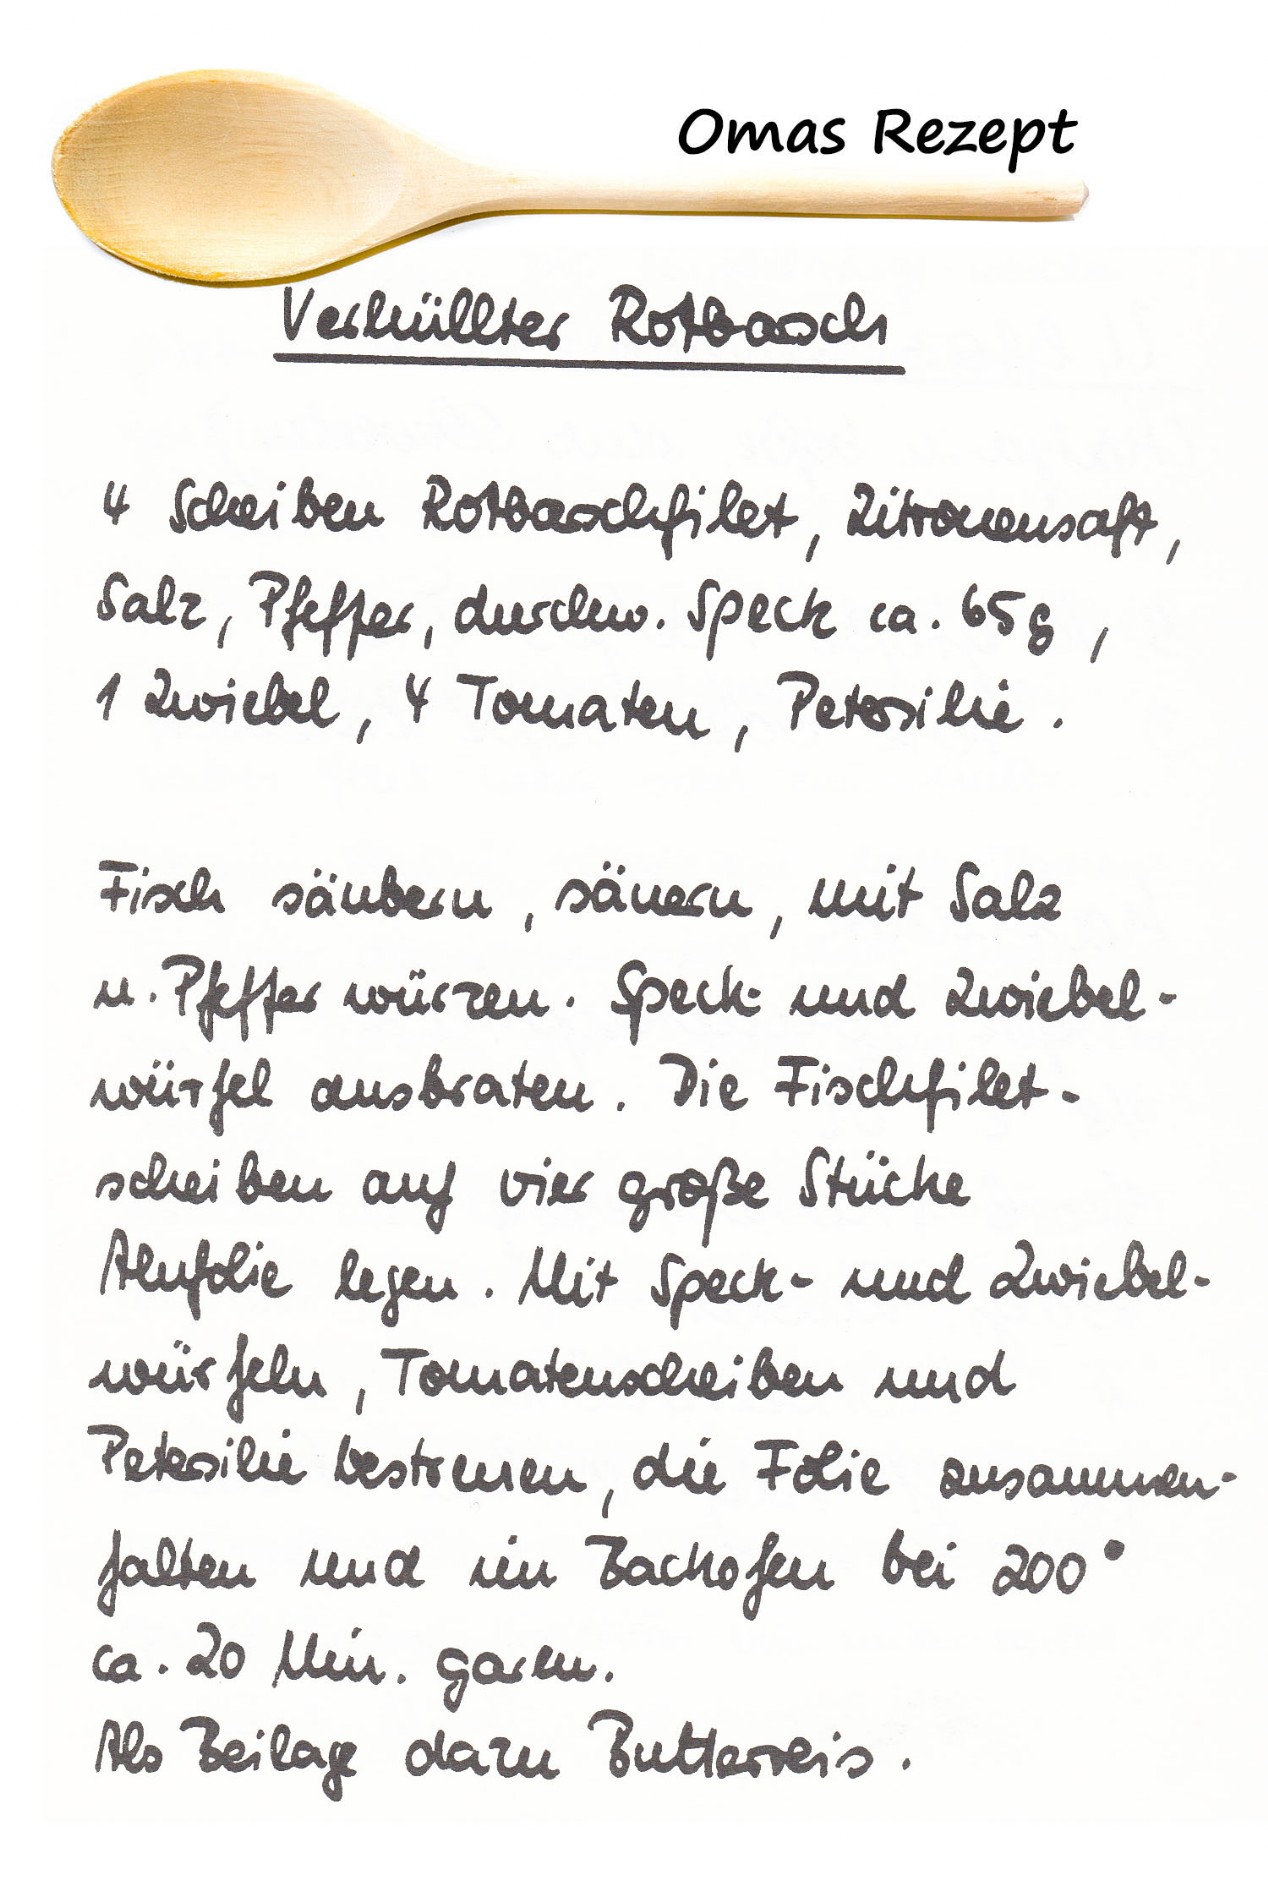 Omas Rezept
Verhüllter Rotbarsch
4 Scheiben Rotbarschfilet, Zitronensaft,
Salz, Pfeffer, durchw. Speck ca. 65g,
1 Zwiebel, 4 Tomaten, Petersilie.
Fisch säubern, säuern, mit Salz
u. Pfeffer würzen. Speck- und Zwiebel-
würfel ausbraten. Die Fischfilet-
scheiben auf vier große Stücke
Alufolie legen. Mit Speck- und Zwiebel-
würfeln, Tomatenscheiben und
Petersilie bestreuen, die Folie zusammen-
falten und im Backofen bei 200°
ca. 20 Min. garen.
Als Beilage dazu Butterreis.